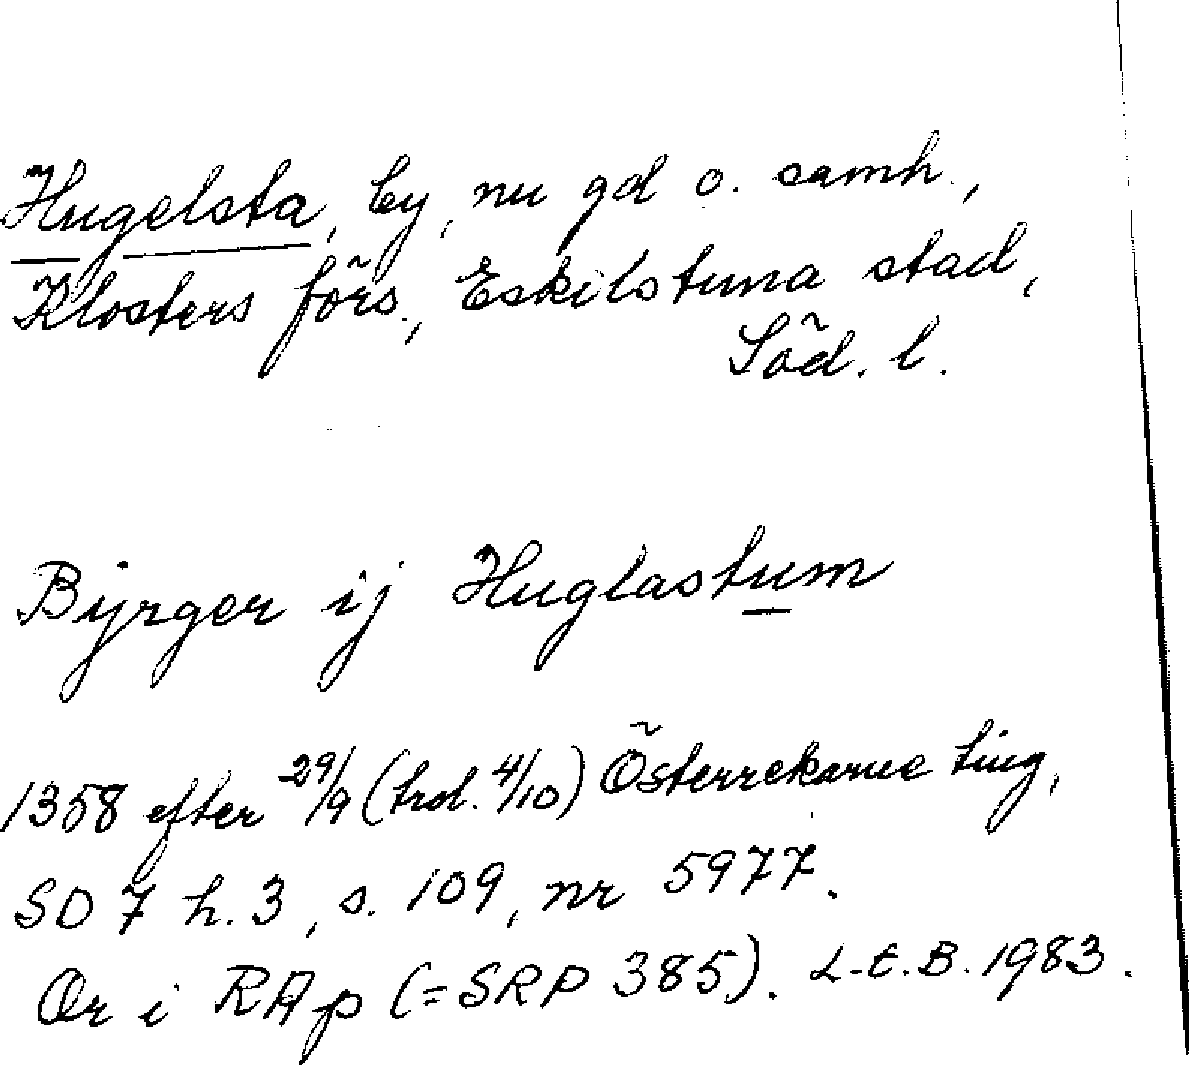 Hugelsta, by, nu gd o. samh.,
Klosters förs., Eskilstuna stad,
Söd. l.
Byrger ij Huglastum
1358 efter 29/9 (trol. 4/10) Österrekarne ting,
SD 7 h. 3, s. 109, nr 5977.
Or i RAp (=SRP 385). L.E.B. 1983.